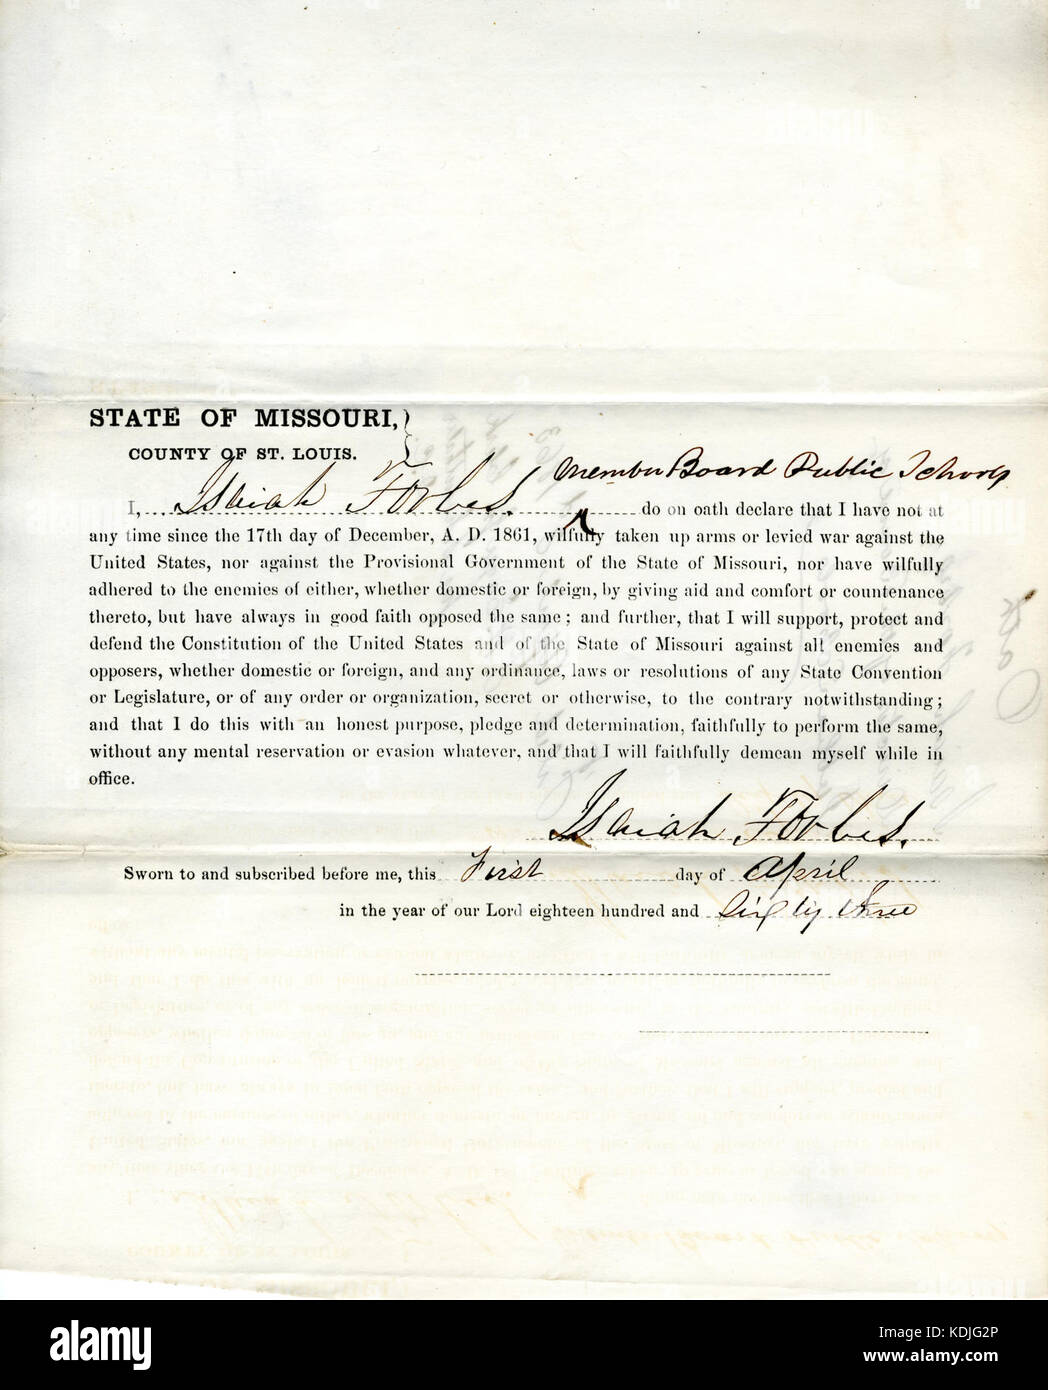 STATE OF MISSOURI,
COUNTY OF ST. LOUIS.
Member Board Public Schools
I, Isaiah Forbes. do on oath declare that I have not at
any time since the 17th day of December, A. D. 1861, wilfully taken up arms or levied war against the
United States, nor against the Provisional Government of the State of Missouri, nor have wilfully
adhered to the enemies of either, whether domestic or foreign, by giving aid and comfort or countenance
thereto, but have always in good faith opposed the same; and further, that I will support, protect and
defend the Constitution of the United States and of the State of Missouri against all enemies and
opposers, whether domestic or foreign, and any ordinance, laws or resolutions of any State Convention
or Legislature, or of any order or organization, secret or otherwise, to the contrary notwithstanding;
and that I do this with an honest purpose, pledge and determination, faithfully to perform the same,
without any mental reservation or evasion whatever, and that I will faithfully demean myself while in
office.
Isaiah Forbes.
Sworn to and subscribed before me, this First day of April
in the year of our Lord eighteen hundred and Sixty three
alamy
Image ID: KDJG2P
www.alamy.com